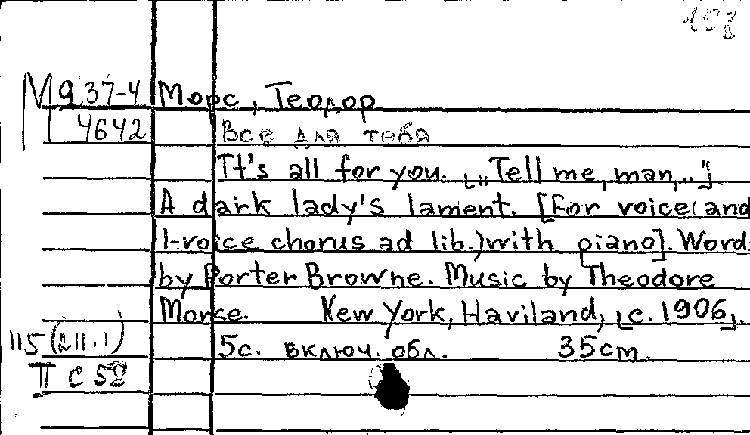 М 937-4 Морс, Теодор
4642 Все для тебя
It's all for you. [„Tell me, man,.."]
A dark lady's lament. [For voice (and
1-voice chorus ad lib.) with piano]. Word
by Porter Browne. Music by Theodore
Morse. New York, Haviland, [c. 1906].
5с. включ. обл. 35см.
115 (211.1)
П с 58